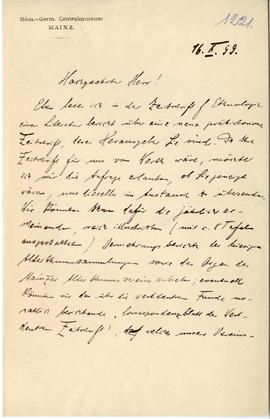 Röm.-Germ. Centralmuseum
MAINZ.
1221.
16. X. 99.
Hochgeehrter Herr!
Eben lese ich in der Zeitschrift f. Ethnologie
einen Literatur bericht über eine neue prähistorische
Zeitschrift, deren Herausgeber Sie sind. Da die
Zeitschrift für uns von Werth wäre, möchte
ich mir die Anfrage erlauben, ob Sie geneigt
wären, uns dieselbe im Austausch zu übersenden.
Wir könnten Ihnen dafür die jährlich er-
scheinenden, reich illustrirten (mit c. 8 Tafeln
ausgestatteten) Vermehrungsberichte der hiesigen
Alterthumssammlungen sowie das Organ des
Mainzer Alterthumsvereins anbieten; eventuell
könnten wir das über die westdeutschen Funde mo-
natlich berichtende "Correspondenzblatt der West-
deutschen Zeitschrift", welches unsere Vereins-